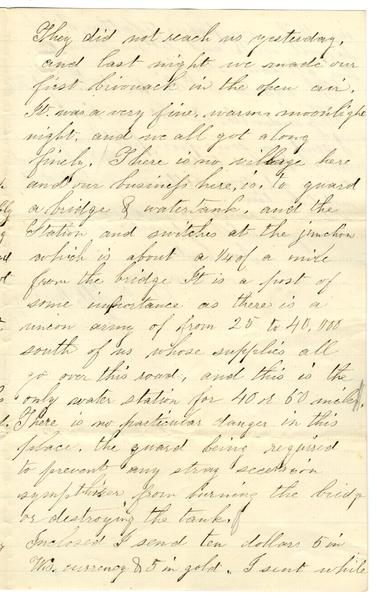 They did not reach us yesterday,
and last night we made our
first bivouack in the open air.
It was a very fine, warm, moonlight
night, and we all got along
finely. There is no village here
and our business here, is, to guard
a bridge & watertank, and the
Station and switches at the junction
which is about a 1/4 of a mile
from the bridge It is a post of
some importance as there is a
union army of from 25 to 40,000
south of us whose supplies all
go over this road, and this is the
only water station for 40 or 60 miles.
There is no particular danger in this
place. the guard being required
to prevent any stray secession
sympthiser from burning the bridg
or destroying the tank.
Inclosed I send ten dollars 5 in
Wis. currency & 5 in gold. I sent while